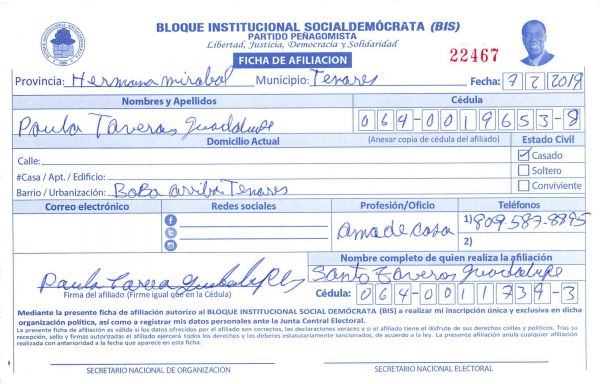 BLOQUE INSTITUCIONAL SOCIALDEMÓCRATA (BIS)
PARTIDO PEÑAGOMISTA
Libertad, Justicia, Democracia y Solidaridad
FICHA DE AFILIACION
22467
Provincia: Hermana mirabal Municipio: Tenares Fecha: 7 2 2019
Nombres y Apellidos Cédula
Paula Taveras Guadalupe 064-0019653-8
Domicilio Actual (Anexar copia de cédula del afiliado) Estado Civil
Calle: Casado
#Casa / Apt. / Edificio: Soltero
Barrio / Urbanización: BoBa arriba Tenares Conviviente
Correo electrónico Redes sociales Profesión/Oficio Teléfonos
ama de casa 1) 809-587-8895
2)
Nombre completo de quien realiza la afiliación
Santo Taveras Guadalupe
Firma del afiliado (Firme igual que en la Cédula) Cédula: 064-0011739-3
Mediante la presente ficha de afiliación autorizo al BLOQUE INSTITUCIONAL SOCIAL DEMÓCRATA (BIS) a realizar mi inscripción única y exclusiva en dicha
organización política, así como a registrar mis datos personales ante la Junta Central Electoral.
La presente ficha de afiliación es válida si los datos ofrecidos por el afiliado son correctos, las declaraciones veraces y si el afiliado tiene el disfrute de sus derechos civiles y políticos. Tras su
recepción, sello y firmas autorizadas el afiliado ejercerá todos los derechos y los deberes estatutariamente sancionados, de acuerdo a la ley. La presente afiliación anula cualquier afiliación
realizada con anterioridad a la fecha que aparece en esta ficha.
SECRETARIO NACIONAL DE ORGANIZACIÓN SECRETARIO NACIONAL ELECTORAL